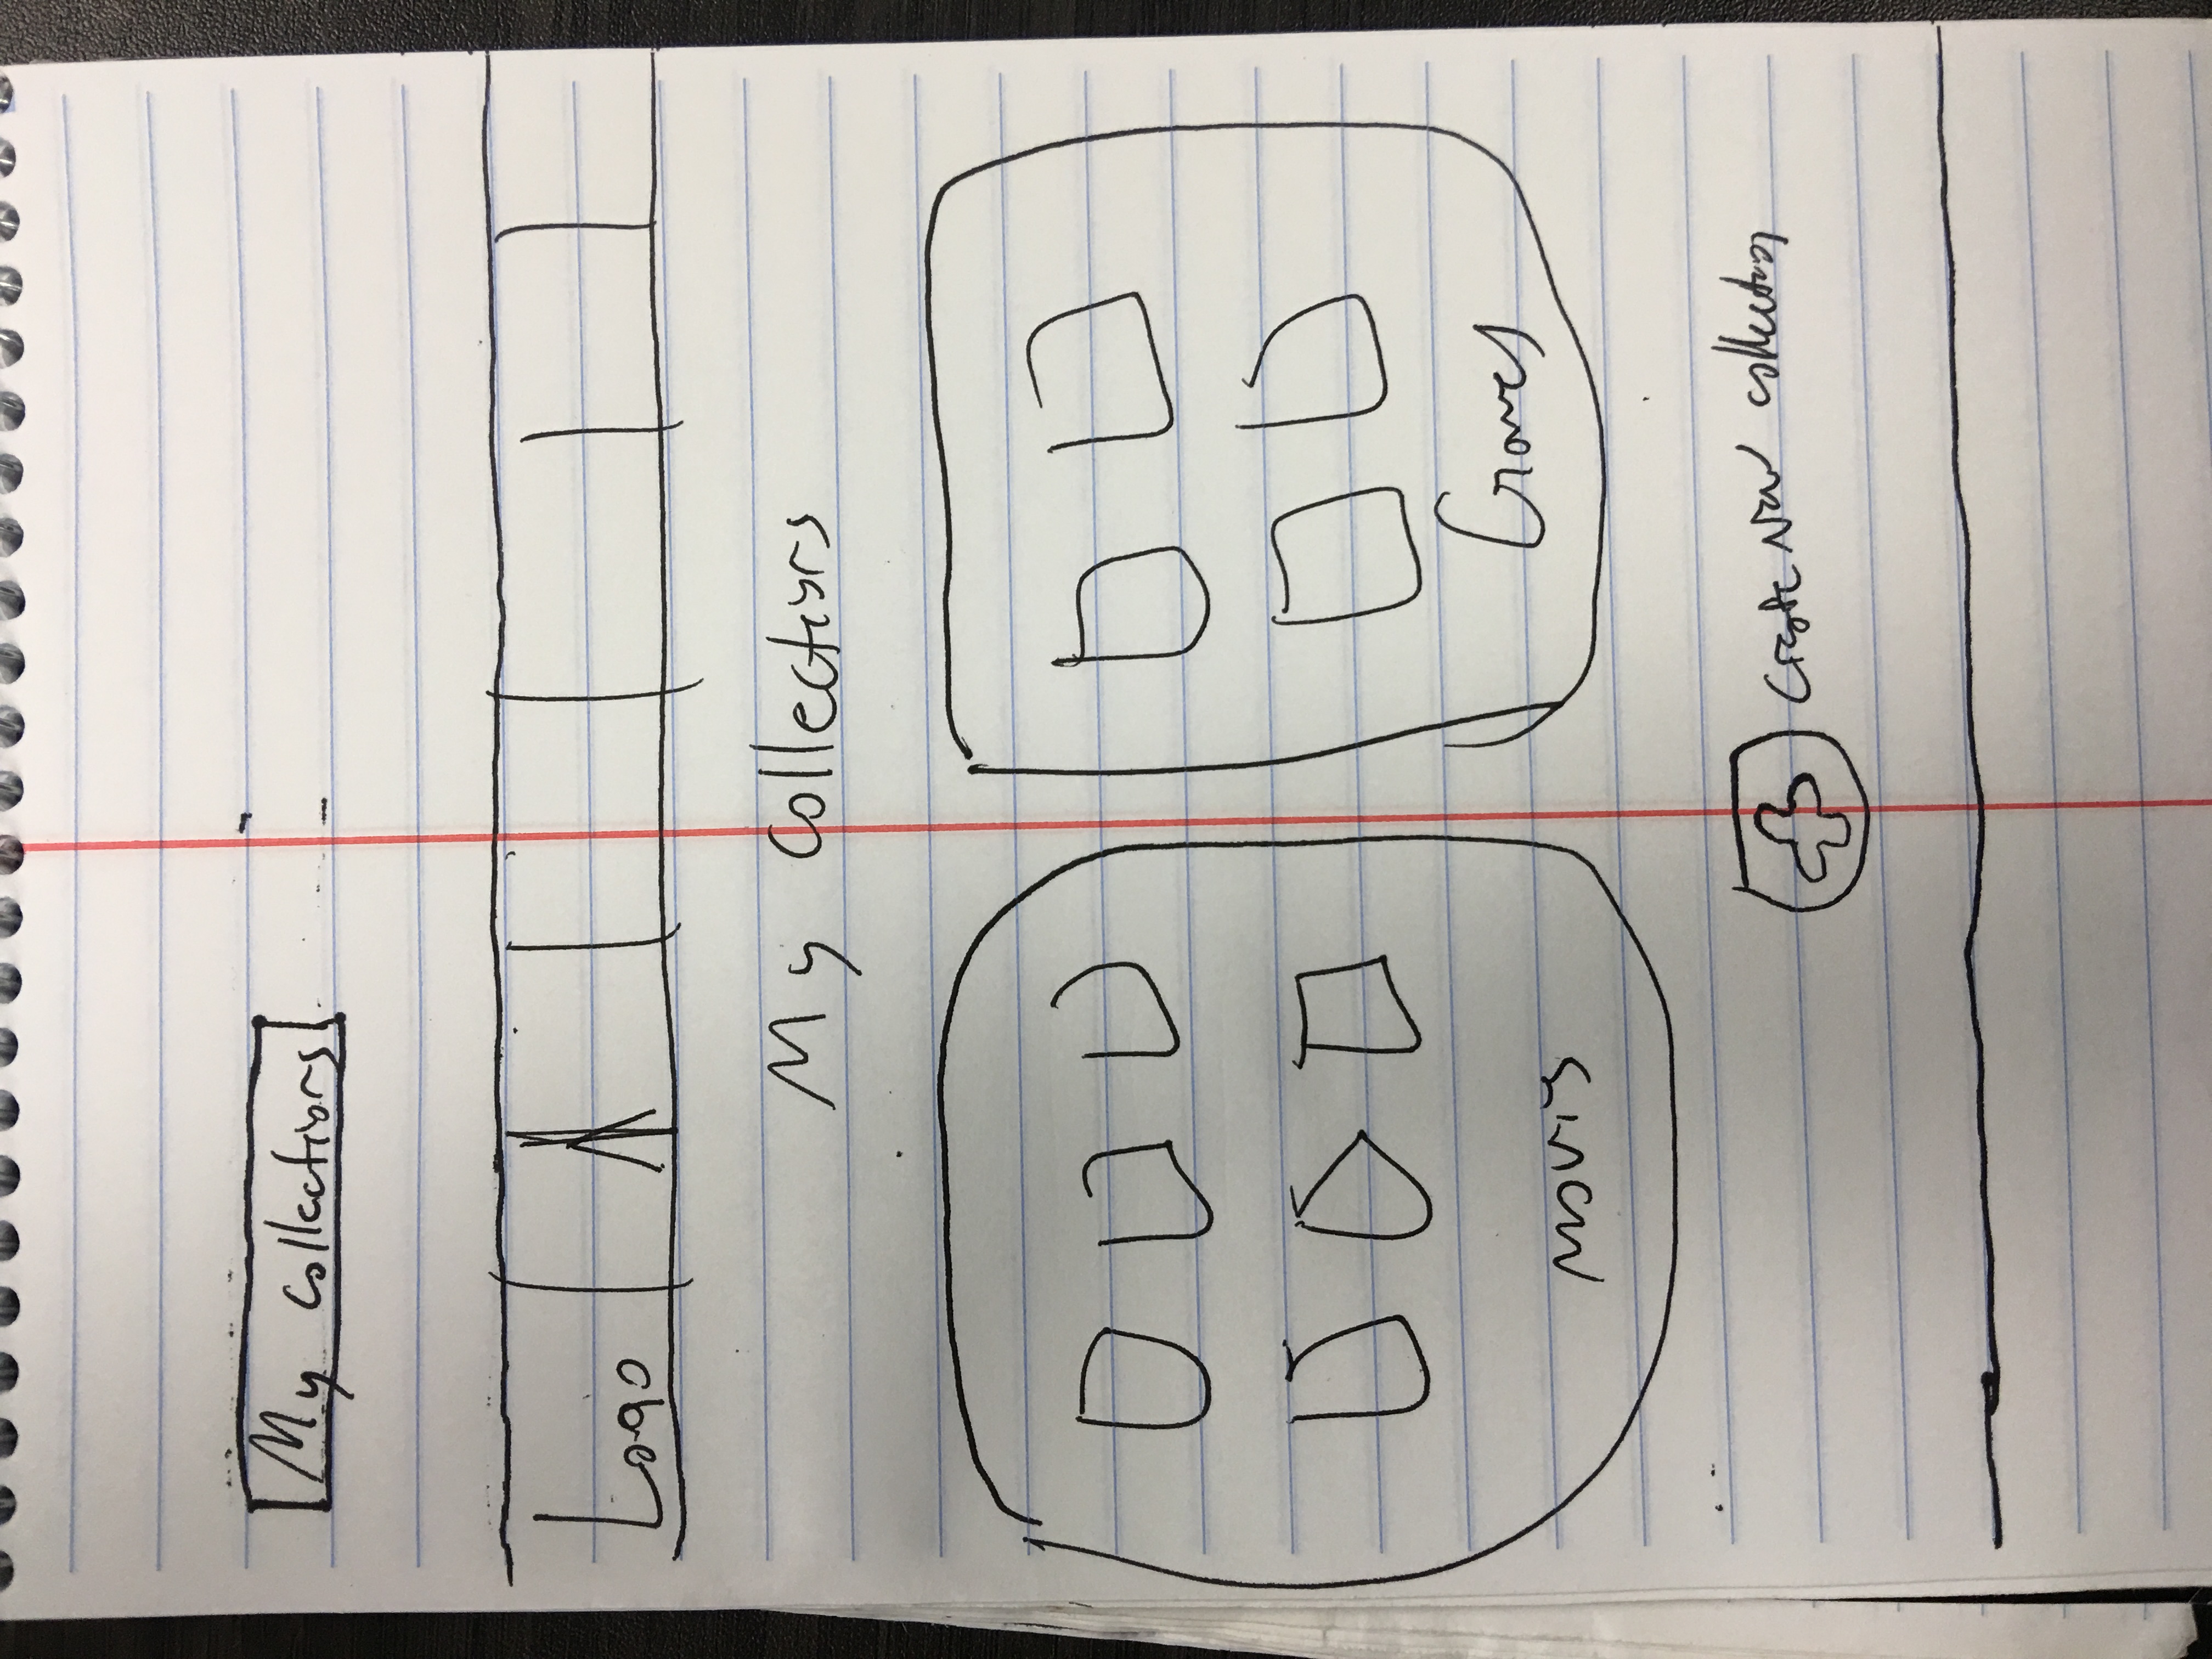 My Collections
Logo
My Collections
Movies
Games
Create New collection